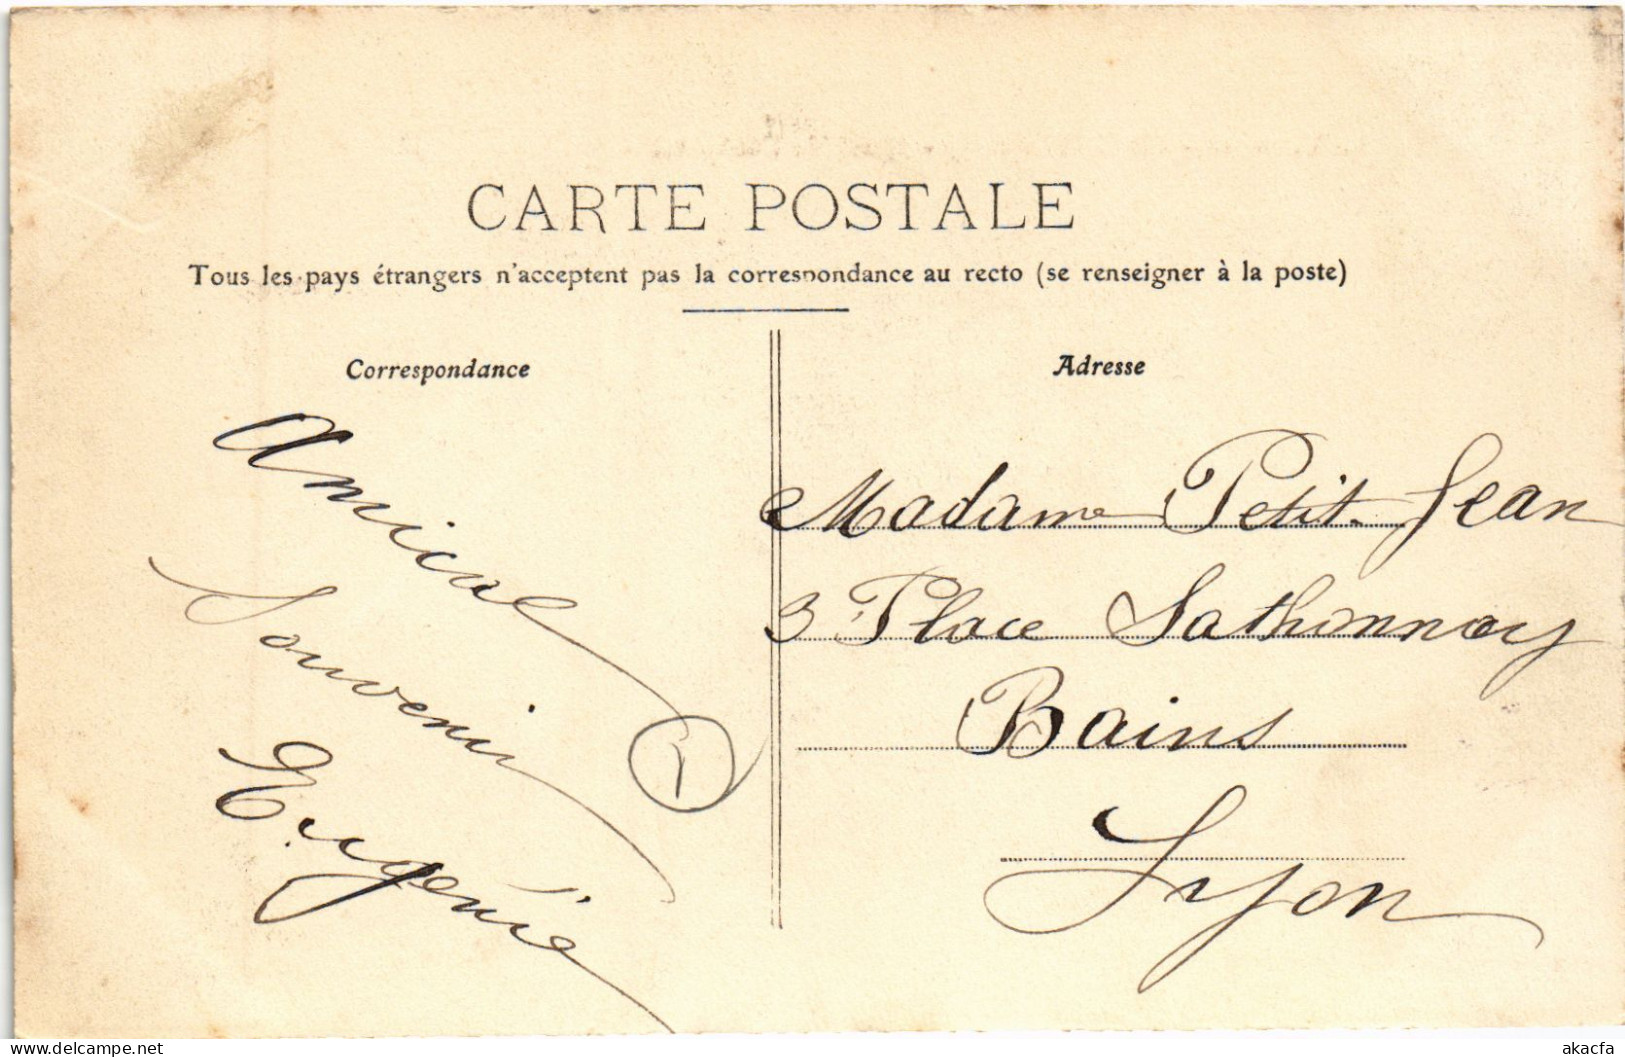 CARTE POSTALE
Tous les pays étrangers n'acceptent pas la correspondance au recto (se renseigner à la poste)
Correspondance
Amical
Souvenir
Eugénie
1
Adresse
Madame Petit-Jean
3 Place Sathonnay
Bains
Lyon
delcampe.net
akacfa